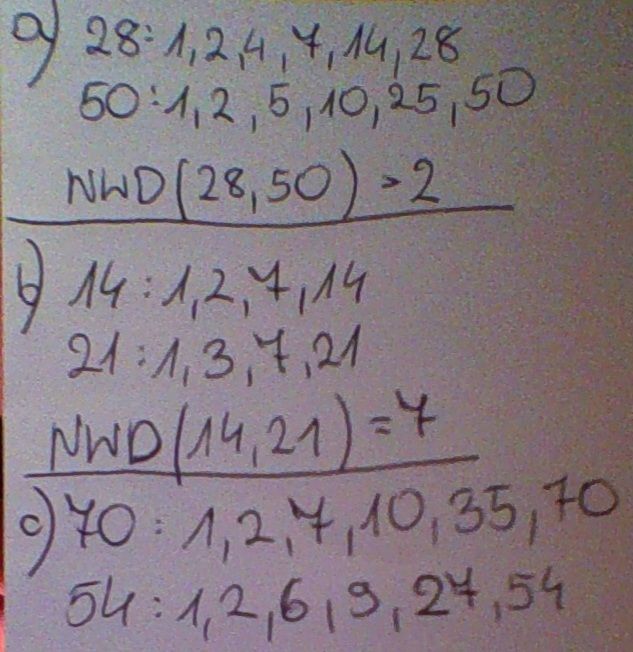 a) 28:1,2,4,7,14,28
50:1,2,5,10,25,50
NWD(28,50)=2
b) 14:1,2,7,14
21:1,3,7,21
NWD(14,21)=7
c) 70:1,2,7,10,35,70
54:1,2,6,9,27,54